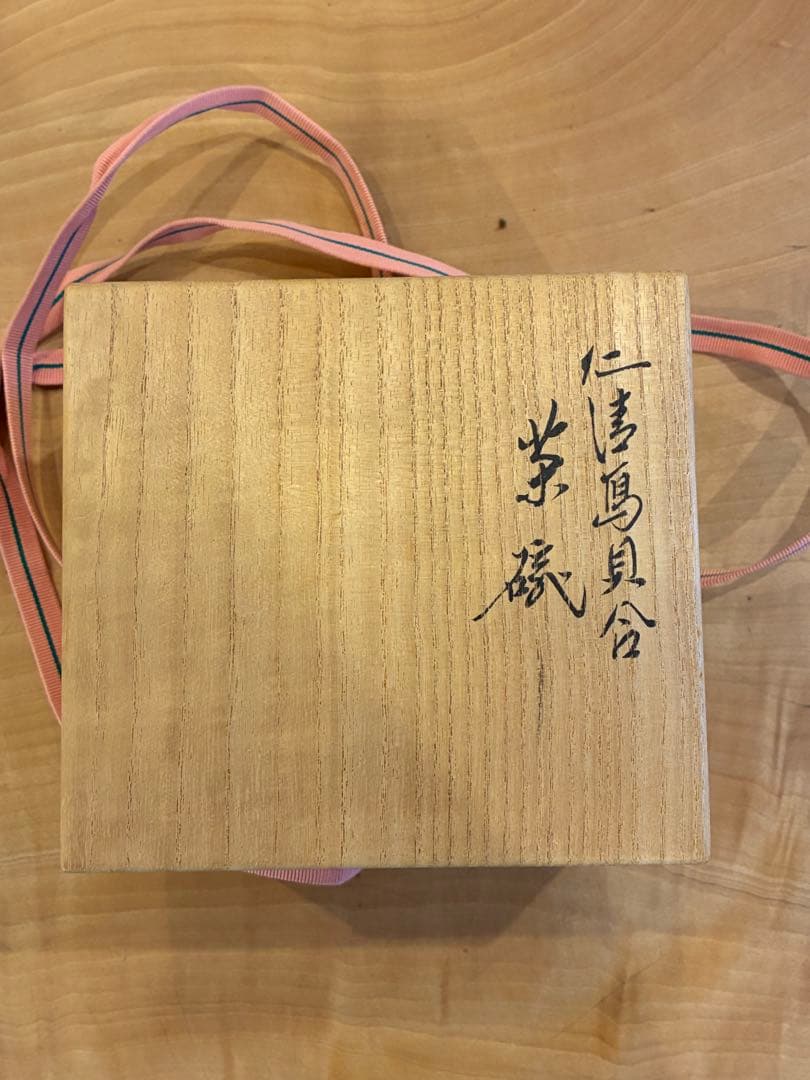 仁清寫貝合
茶碗